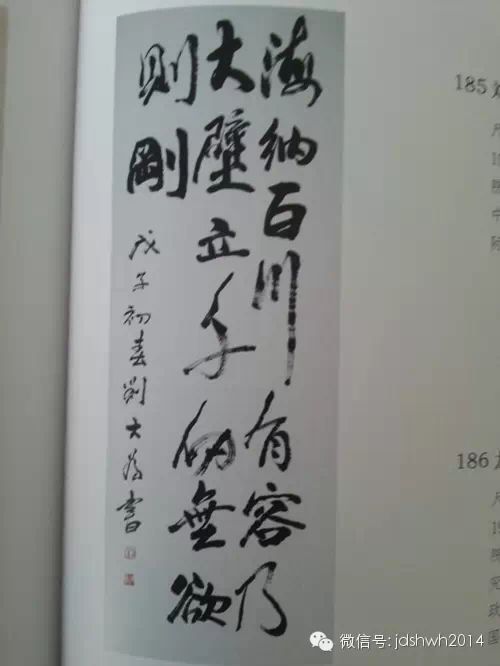 海納百川有容乃
大壁立千仞無欲
則剛
戊子初春劉大為書
185
186
微信号: jdshwh2014